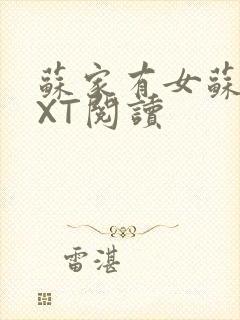 蘇家有女蘇
XT閱讀
雷湛